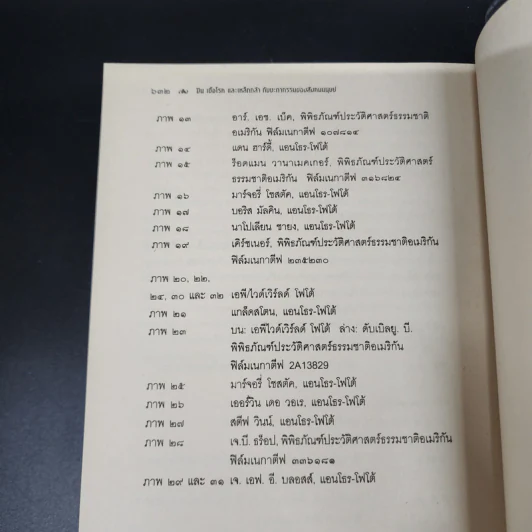 ๖๓๒ ปืน เชื้อโรค และเหล็กกล้า กับชะตากรรมของสังคมมนุษย์
ภาพ ๑๓ อาร์. เอช. เบ็ค, พิพิธภัณฑ์ประวัติศาสตร์ธรรมชาติ
อเมริกัน ฟิล์มเนกาตีฟ ๑๐๗๘๑๔
ภาพ ๑๔ แดน ฮาร์ดี้, แอนโธร-โฟโต้
ภาพ ๑๕ ร็อดแมน วานาเมคเกอร์, พิพิธภัณฑ์ประวัติศาสตร์
ธรรมชาติอเมริกัน ฟิล์มเนกาตีฟ ๓๑๖๘๒๔
ภาพ ๑๖ มาร์จอรี่ โชสตัค, แอนโธร-โฟโต้
ภาพ ๑๗ บอริส มัลคิน, แอนโธร-โฟโต้
ภาพ ๑๘ นาโปเลียน ชายง, แอนโธร-โฟโต้
ภาพ ๑๙ เคิร์ชเนอร์, พิพิธภัณฑ์ประวัติศาสตร์ธรรมชาติอเมริกัน
ฟิล์มเนกาตีฟ ๒๓๕๒๓๐
ภาพ ๒๐, ๒๒,
๒๔, ๓๐ และ ๓๒ เอพี/ไวด์เวิร์ลด์ โฟโต้
ภาพ ๒๑ แกล็ดสโตน, แอนโธร-โฟโต้
ภาพ ๒๓ บน: เอพีไวด์เวิร์ลด์ โฟโต้ ล่าง: ดับเบิลยู. บี.
พิพิธภัณฑ์ประวัติศาสตร์ธรรมชาติอเมริกัน
ฟิล์มเนกาตีฟ 2A13829
ภาพ ๒๕ มาร์จอรี่ โชสตัค, แอนโธร-โฟโต้
ภาพ ๒๖ เออร์วิน เดอ วอเร, แอนโธร-โฟโต้
ภาพ ๒๗ สตีฟ วินน์, แอนโธร-โฟโต้
ภาพ ๒๘ เจ.บี. ธร็อป, พิพิธภัณฑ์ประวัติศาสตร์ธรรมชาติอเมริกัน
ฟิล์มเนกาตีฟ ๓๓๖๑๘๑
ภาพ ๒๙ และ ๓๑ เจ. เอฟ. อี. บลอสส์, แอนโธร-โฟโต้